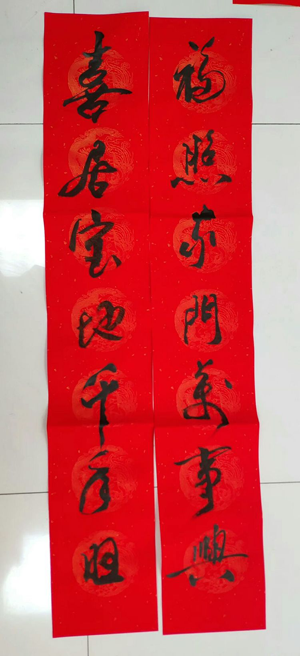 喜居宝地千年旺
福照家門萬事興